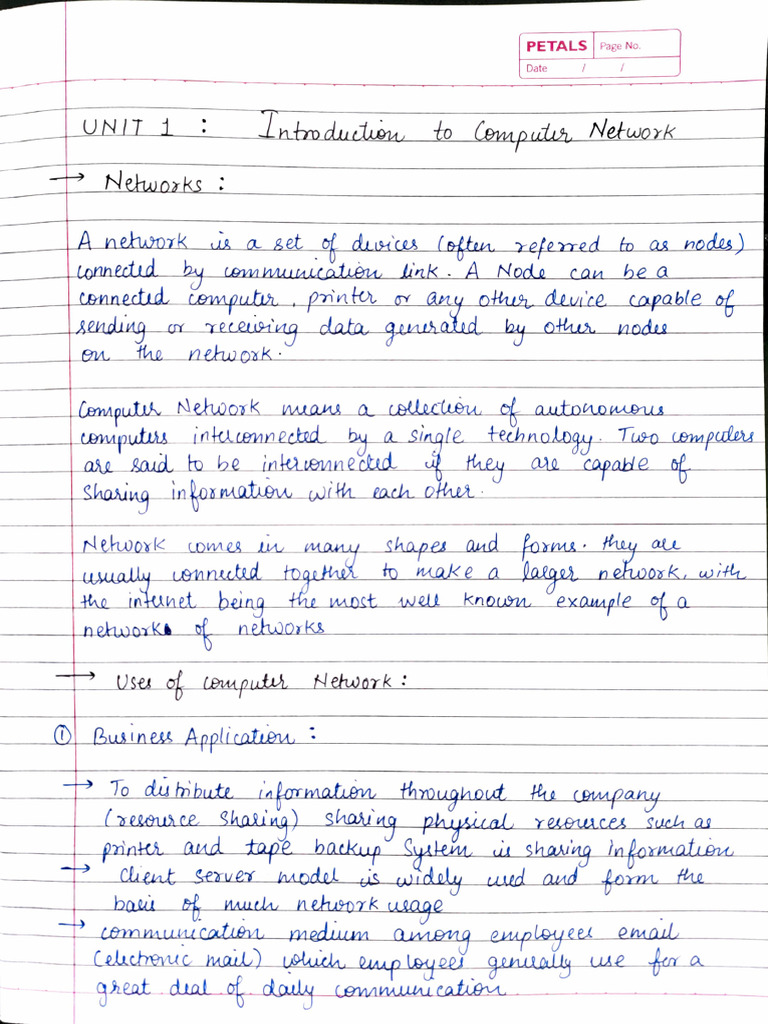 PETALS Page No.
Date / /
UNIT 1 : Introduction to Computer Network
→ Networks :
A network is a set of devices (often referred to as nodes)
connected by communication link. A Node can be a
connected computer, printer or any other device capable of
sending or receiving data generated by other nodes
on the network.
Computer Network means a collection of autonomous
computers interconnected by a single technology. Two computers
are said to be interconnected if they are capable of
sharing information with each other.
Network comes in many shapes and forms. they are
usually connected together to make a larger network, with
the internet being the most well known example of a
network of networks
→ Uses of computer Network :
① Business Application :
→ To distribute information throughout the company
(resource sharing) sharing physical resources such as
printer and tape backup System is sharing information
→ client server model is widely used and form the
basis of much network usage
→ communication medium among employees email
(electronic mail) which employees generally use for a
great deal of daily communication